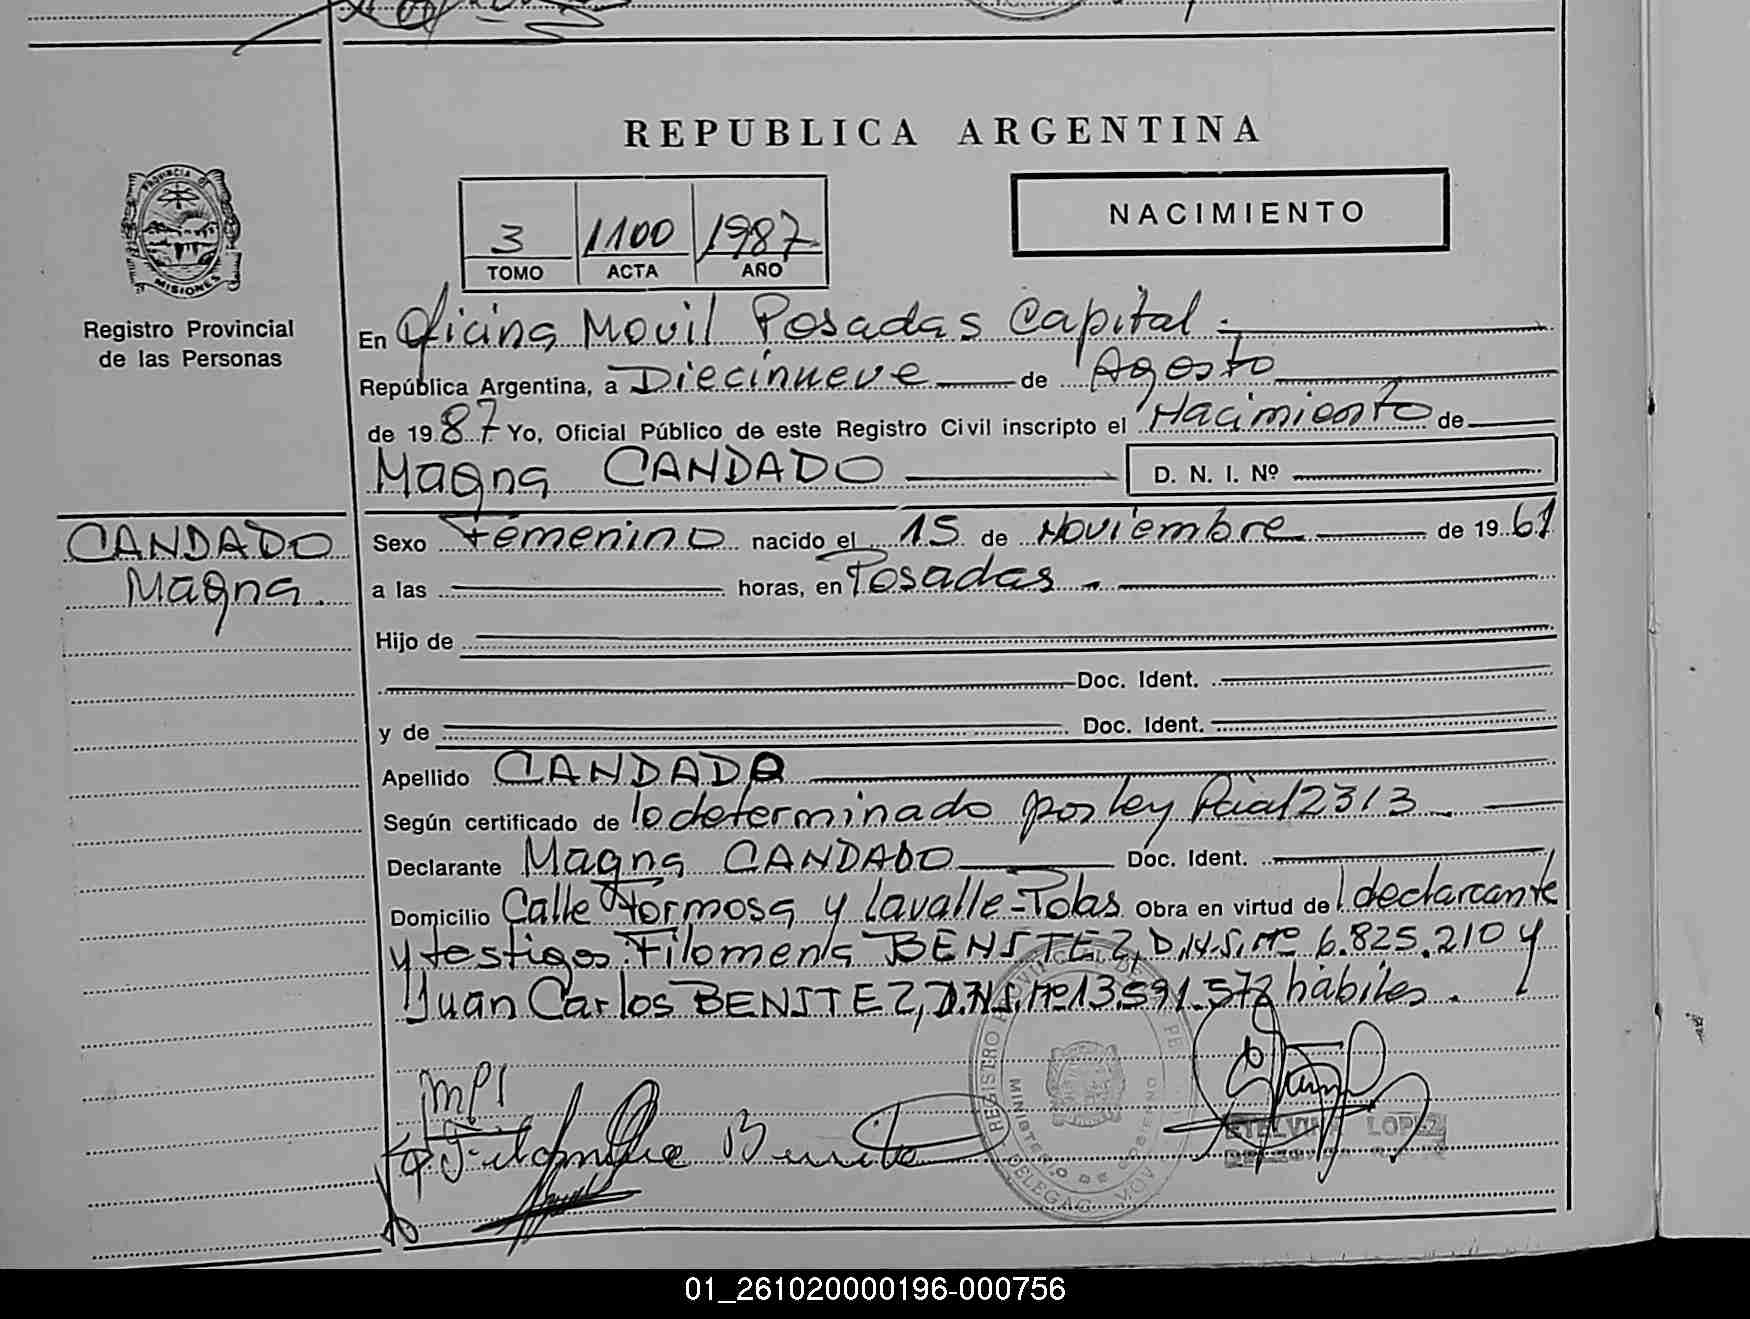 REPUBLICA ARGENTINA
PROVINCIA DE
MISIONES
Registro Provincial
de las Personas
3 1100 1987
TOMO ACTA AÑO
NACIMIENTO
En Oficina Movil Posadas Capital.
República Argentina, a Diecinueve de Agosto
de 1987 Yo, Oficial Público de este Registro Civil inscripto el Nacimiento de
Magna CANDADO D. N. I. Nº
CANDADO
Magna.
Sexo Femenino nacido el 15 de Noviembre de 1961
a las horas, en Posadas.
Hijo de
Doc. Ident.
y de Doc. Ident.
Apellido CANDADO
Según certificado de lo determinado por ley Pcial 2313
Declarante Magna CANDADO Doc. Ident.
Domicilio Calle Formosa y Lavalle-Pdas. Obra en virtud de l declarante
y testigos Filomena BENITEZ, D.N.I. Nº 6.825.210 y
Juan Carlos BENITEZ, D.N.I. Nº 13.591.572 hábiles.
REGISTRO
MINISTERIO DE GOBIERNO
ETELVINA LOPEZ
01_261020000196-000756